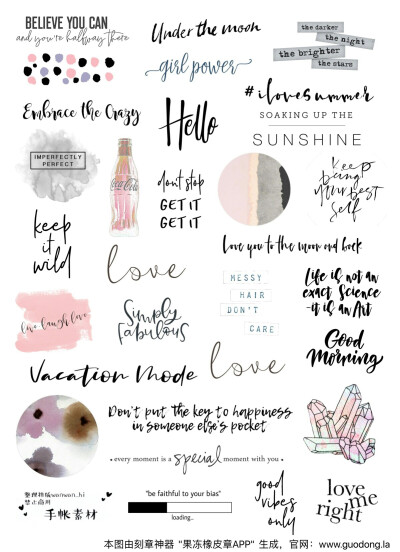 BELIEVE YOU CAN
and you're halfway there
Under the moon
the darker
the night
the brighter
the stars
girl power
#ilovesummer
Embrace the Crazy
Hello
SOAKING UP THE
SUNSHINE
IMPERFECTLY
PERFECT
Coca-Cola
dont stop
GET IT
GET IT
keep
being
your best
self
keep
it
wild
love you to the moon and back
love
MESSY
HAIR
DON'T
CARE
Life is not an
exact Science
-it is an Art
live laugh love
Simply
Fabulous
Good
Morning
love
Vacation Mode
Don't put the key to happiness
in someone else's pocket
• every moment is a special moment with you •
整理排版wonwon_hi
禁止商用
手帐素材
"be faithful to your bias"
loading...
good
vibes
only
love
me
right
本图由刻章神器"果冻橡皮章APP"生成，官网：www.guodong.la